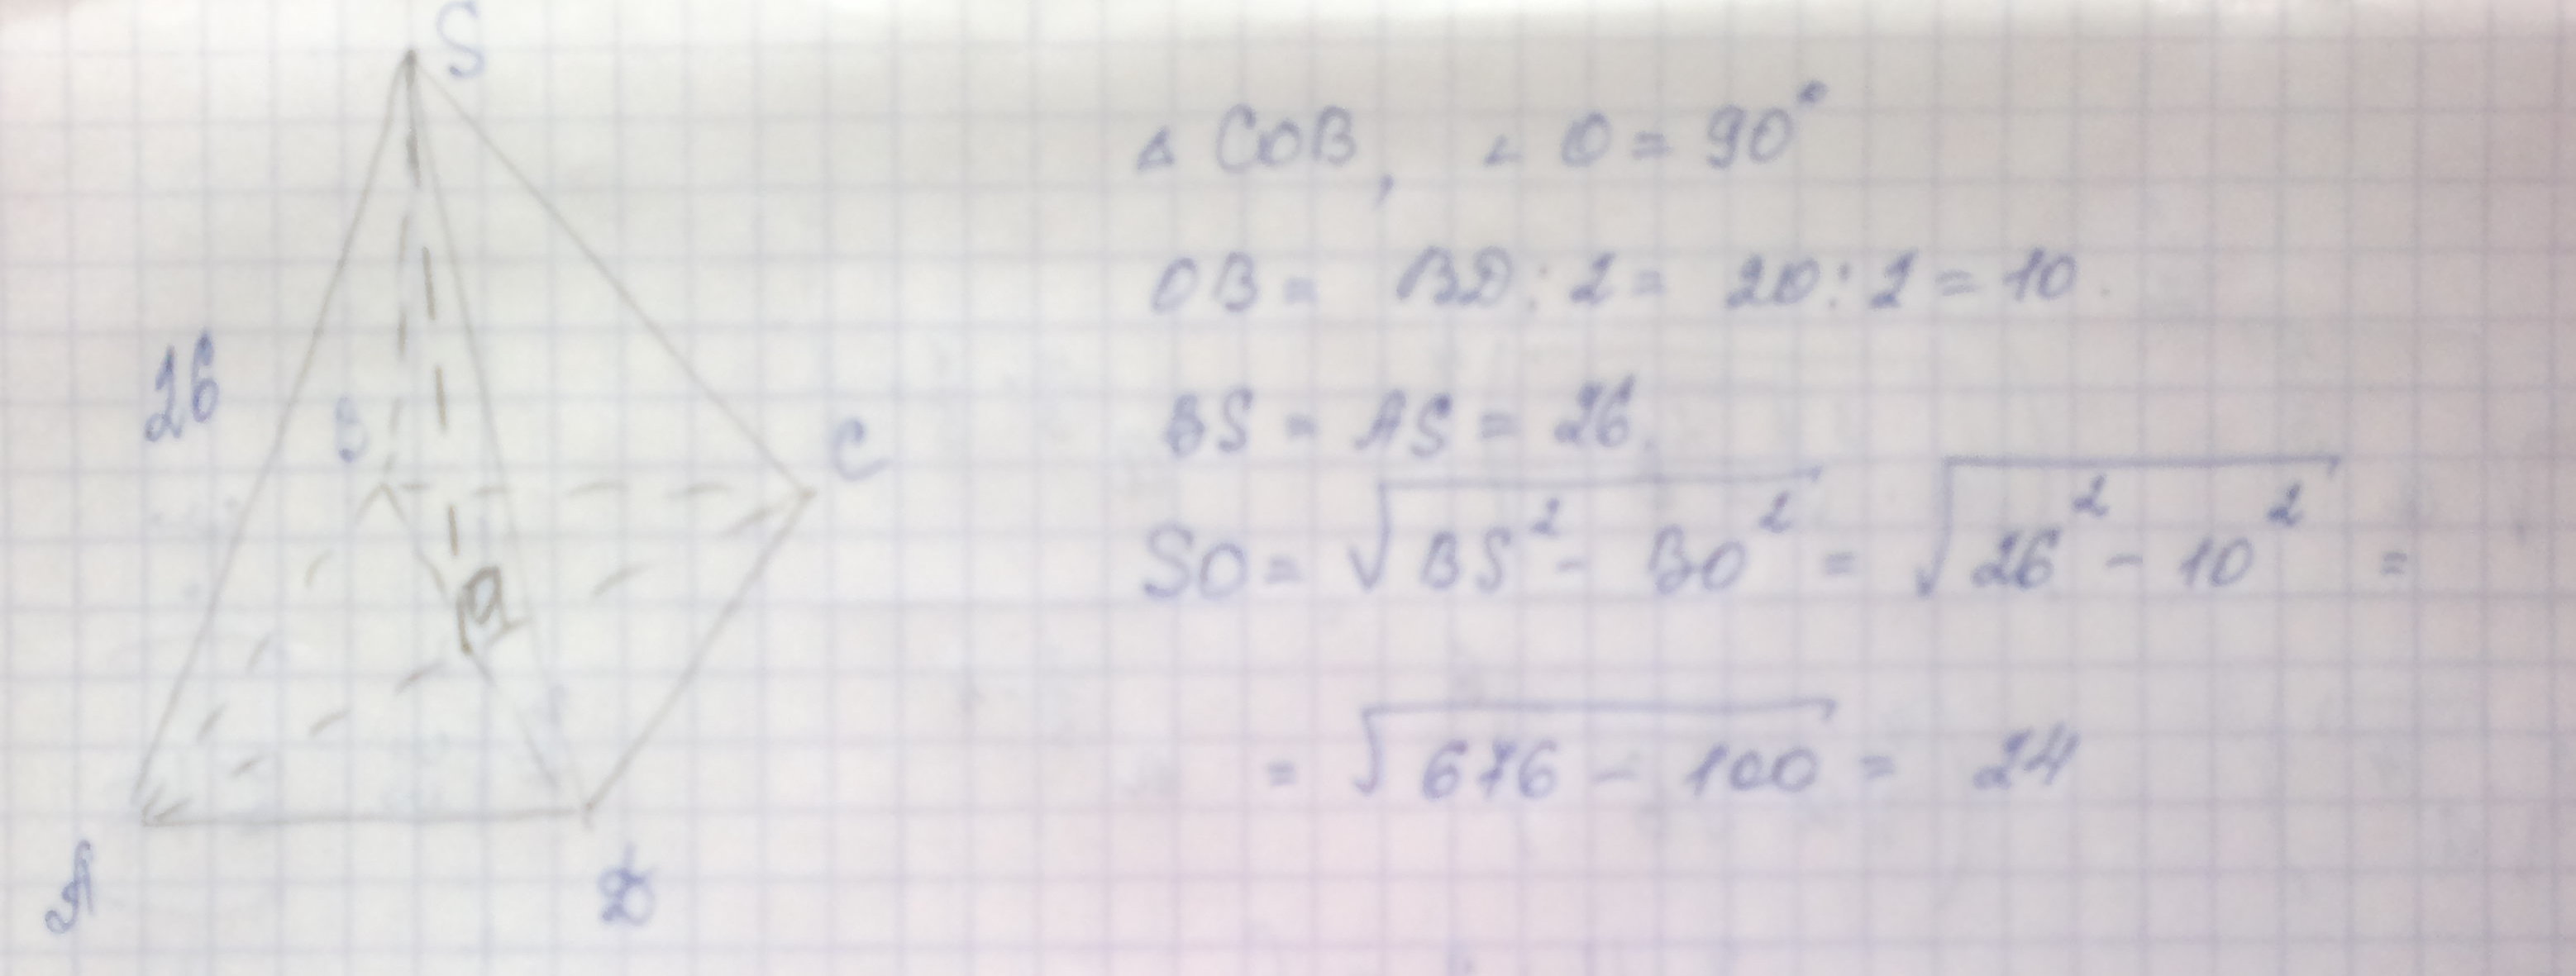 S
26
B
C
O
A
D
△ COB, ∠ O = 90°
OB = BD : 2 = 20 : 2 = 10.
BS = AS = 26.
SO = √(BS² - BO²) = √(26² - 10²) =
= √(676 - 100) = 24